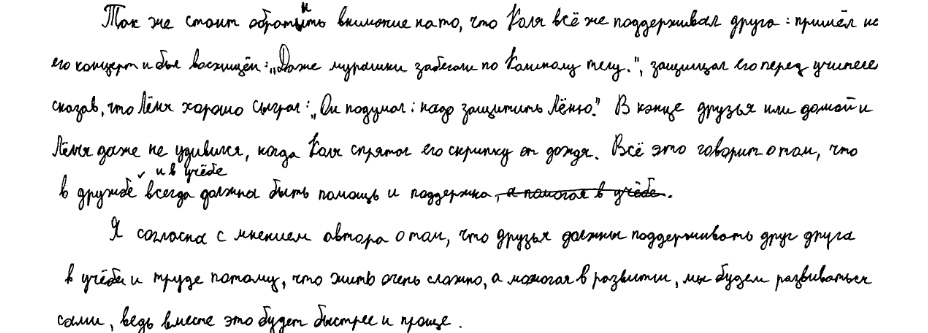 Так же стоит обратить внимание на то, что Коля всё же поддерживал друга: пришёл на
его концерт и был восхищён: „Даже мурашки забегали по Колиному телу.", защищал его перед учителем
сказав, что Лёня хорошо сыграл: „Он подумал: надо защитить Лёню." В конце друзья шли домой и
Лёня даже не удивился, когда Коля спрятал его скрипку от дождя. Всё это говорит о том, что
в дружбе и в учёбе всегда должна быть помощь и поддержка, а помогая в учёбе.
Я согласна с мнением автора о том, что друзья должны поддерживать друг друга
в учёбе и труде потому, что жить очень сложно, а помогая в развитии, мы будем развиваться
сами, ведь вместе это будет быстрее и проще.